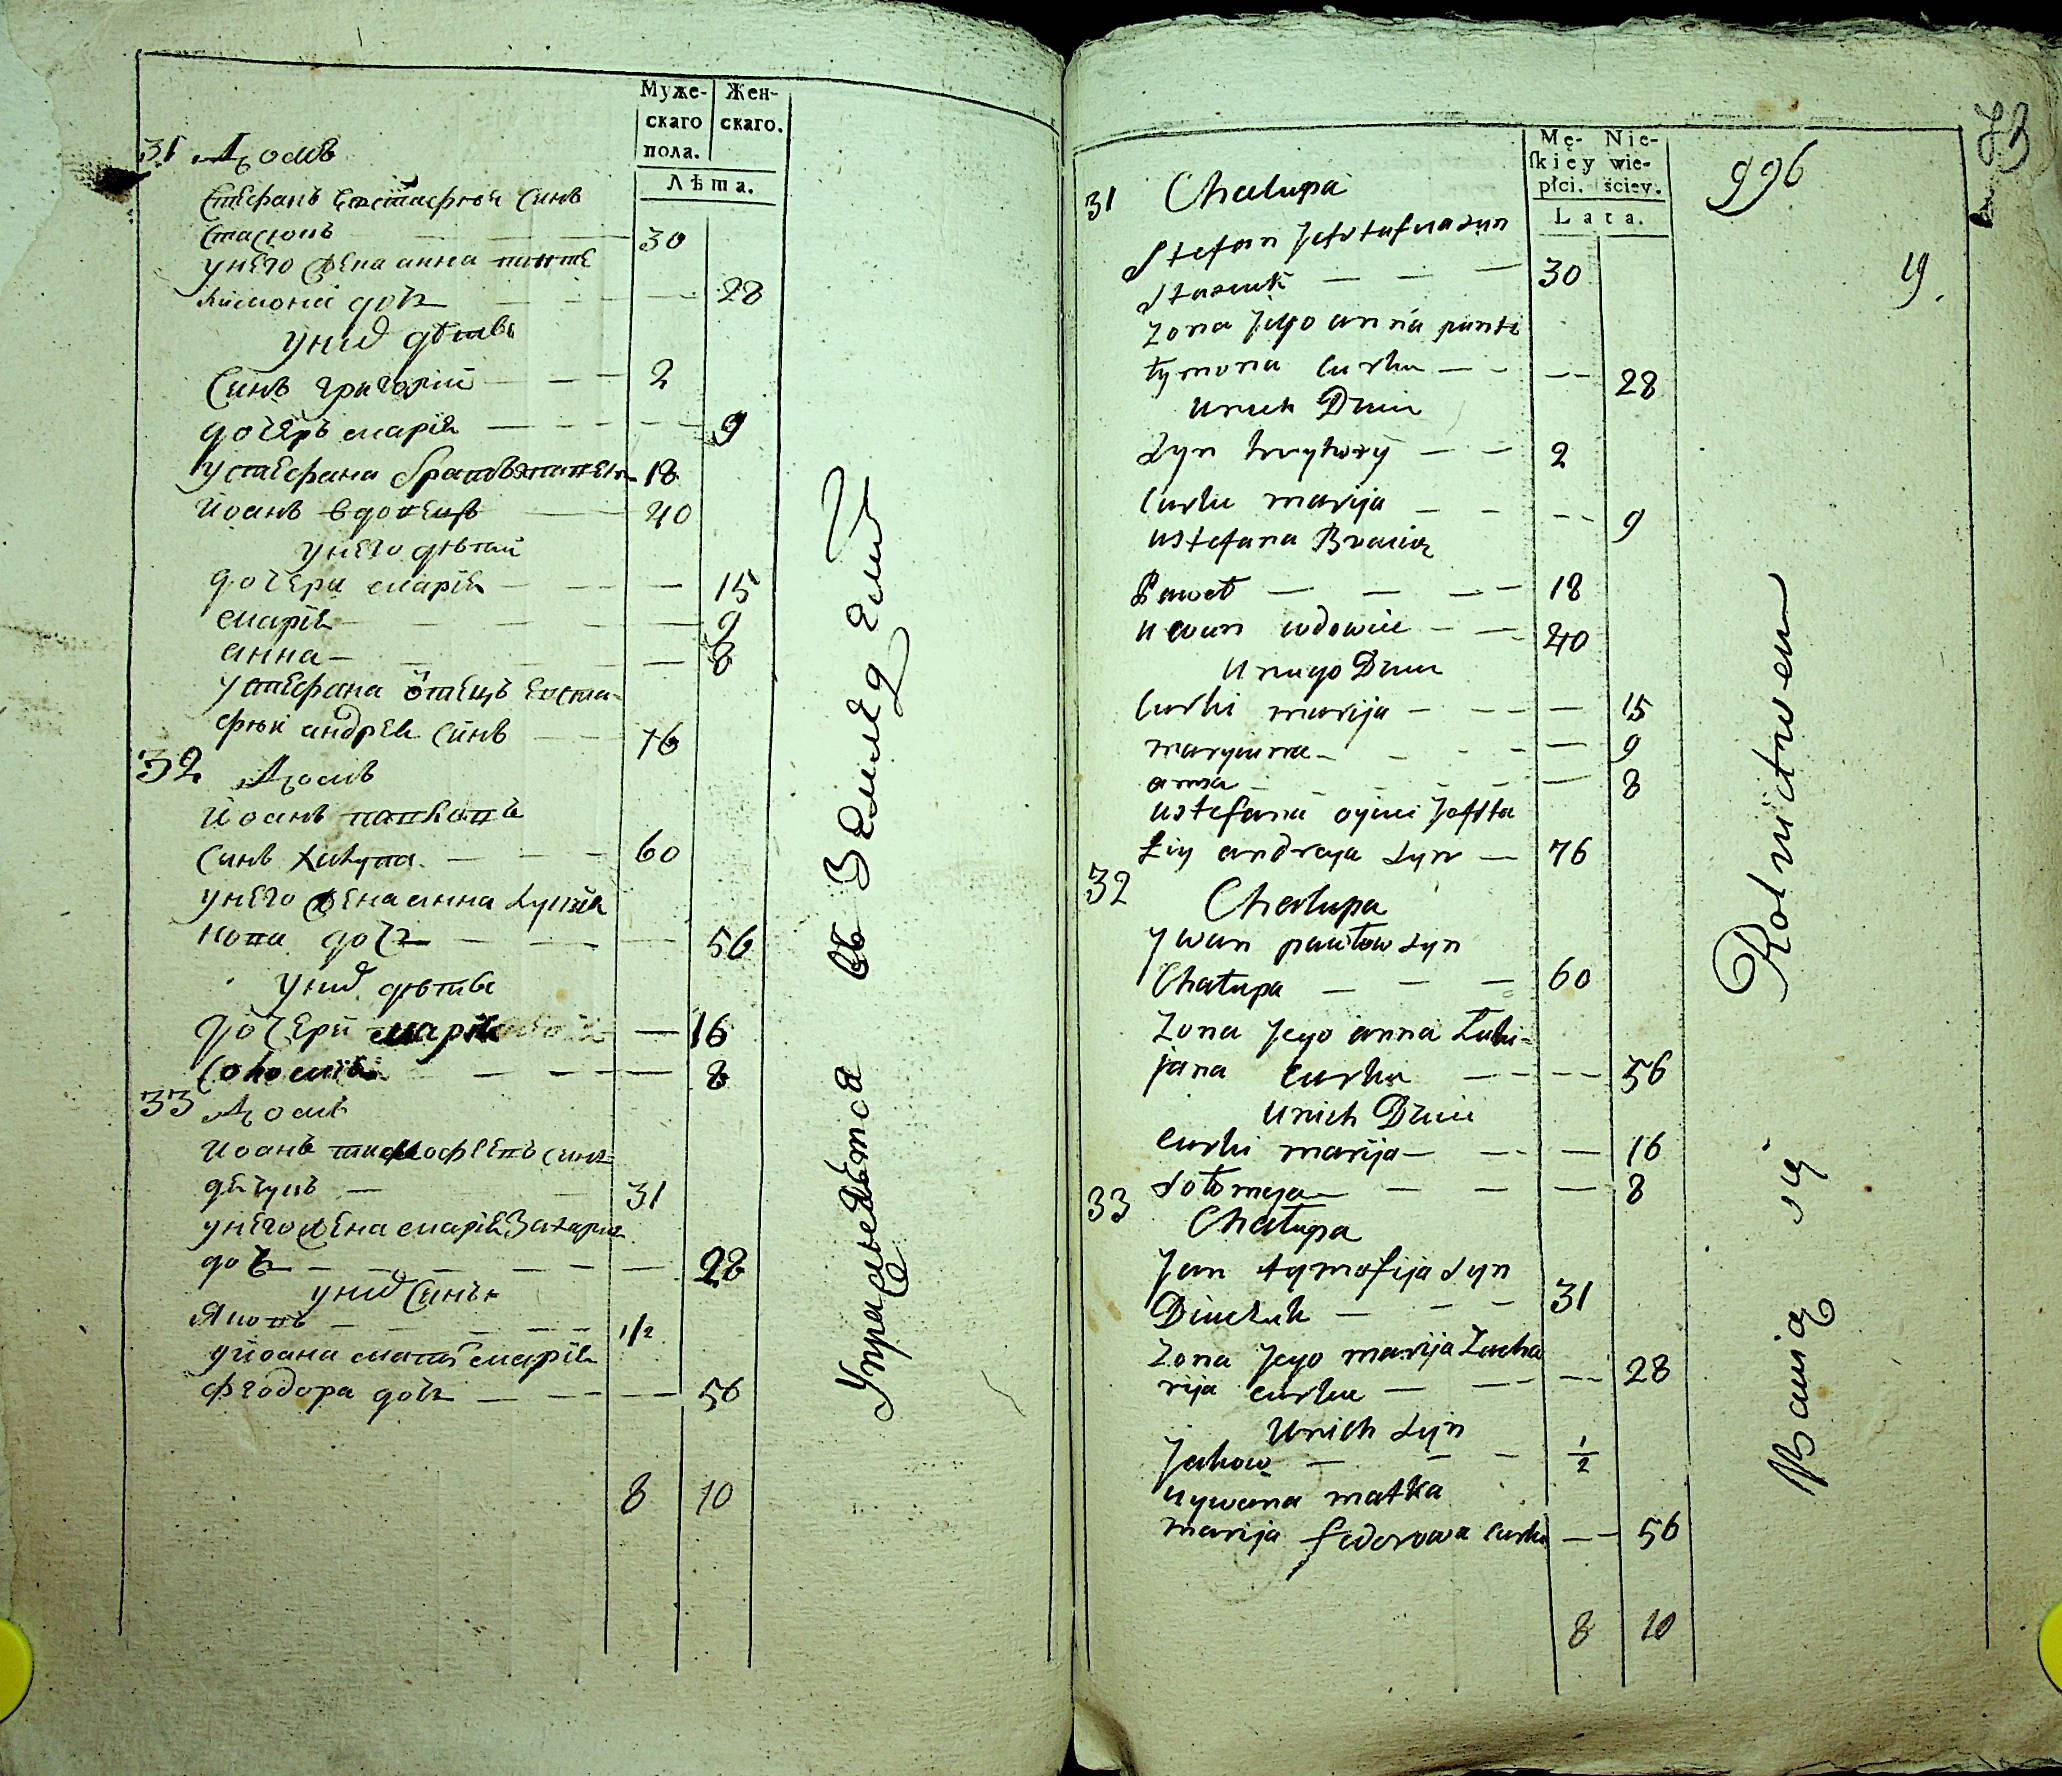 Муже- Жен-
скаго скаго.
пола.
Лѣта.
31 Домъ
Стефанъ Евстафіей Синъ
Стасюкъ 30
унего жена анна панте
лимони дочь 28
унихъ дѣтей
Синъ григорій 2
дочеръ марія 9
устефана братъ 18
йоанъ вдовецъ 40
унего дѣтей
дочери марія 15
марія 9
анна 8
устефана отецъ Евста-
фій андрея Синъ 76
32 Домъ
йоанъ
Синъ Халупа 60
унего жена анна Лукія
нова дочь 56
унихъ дѣтей
дочери марія 16
Соломія 8
33 Домъ
йоанъ тимофеевъ синъ
31
унего жена марія Захарія
дочь 28
унихъ Синъ
Яковъ 1/2
уйоана мать марія
феодора дочь 56
8 10
Упражняется въ Земледелии
73
996
19.
Mę- Nie-
ſkiey wie-
płci. ściey.
Lata.
31 Chałupa
Stefan Jefstafija syn
Stasiuk 30
Zona Jego anna pante
łymona curka 28
Unich Dzieci
Syn hryhory 2
Curka marija 9
Ustefana Bracia
Paweł 18
Iwan wdowiec 40
Uniego Dzieci
Curki marija 15
maryanna 9
anna 8
Ustefana ojciec Jefsta
fiy andreya syn 76
32 Chałupa
Jwan pawłow syn
Chałupa 60
Zona Jego anna Łuki-
jana curka 56
Unich Dzieci
Curki marija 16
Sołomeja 8
33 Chałupa
Jan tymofija syn
31
Zona Jego marija Zacha
rija curka 28
Unich syn
Jakow 1/2
Uywana matka
marija fedorowa curka 56
8 10
Bawią się Rolnictwem